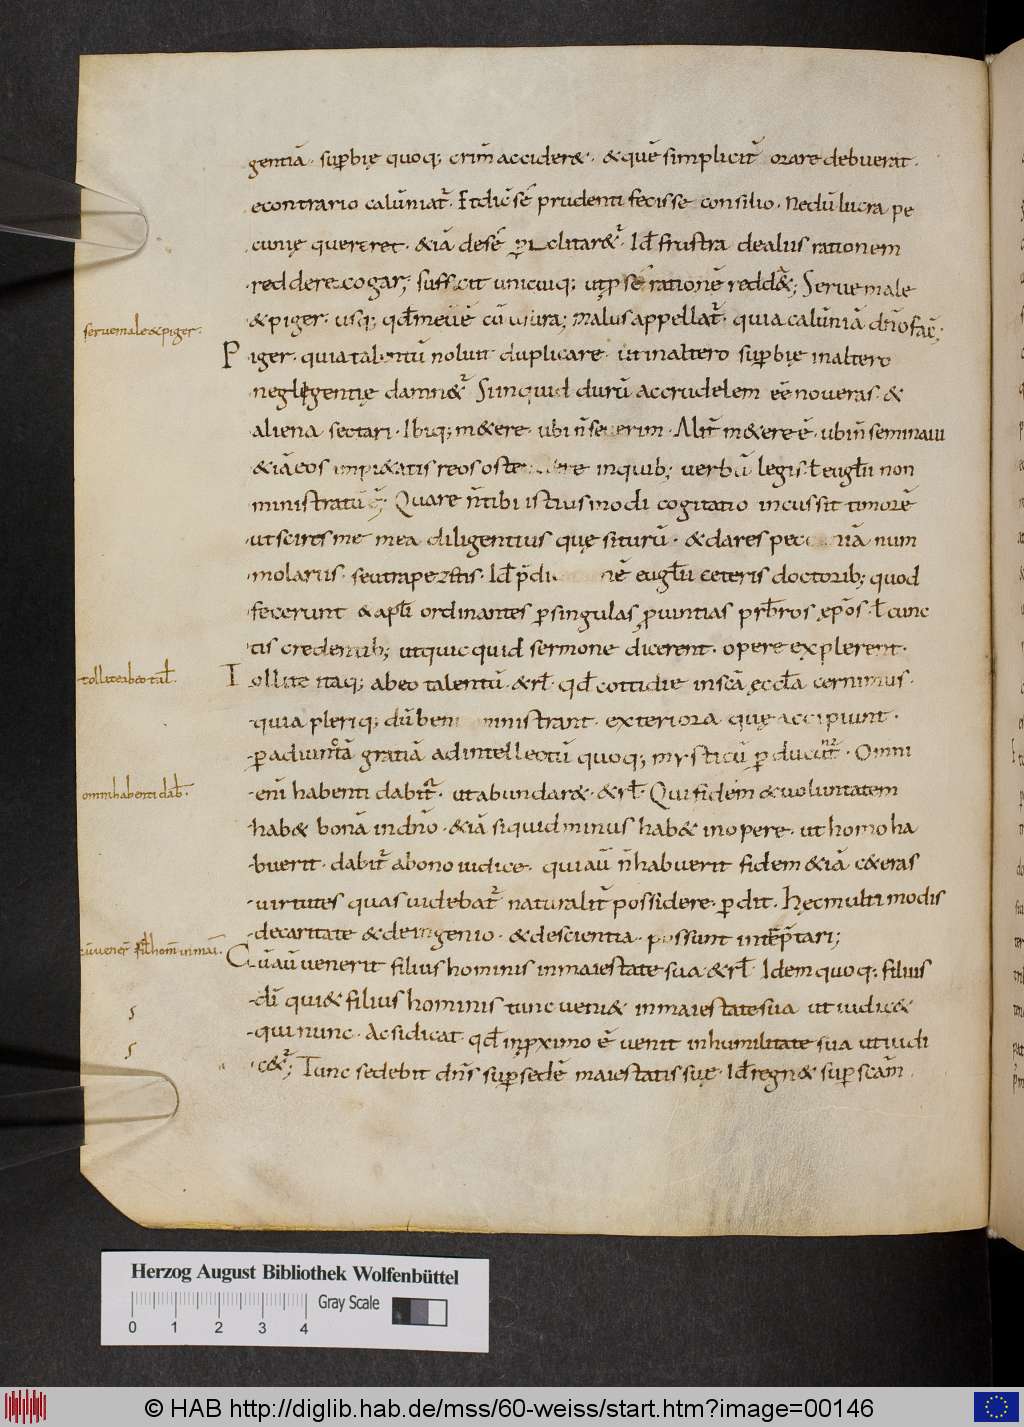 gentiā · suꝑbię quoq; crim̄ accider& · & quē simplicit̄ orare debuerat ·
econtrario calūniat᷑ · Et dic̄ sē prudenti fecisse consilio · Nedū lucra pe
cunię quereret · & iā desē Id̄ frustra dealus rationem
reddere cogar; sufficit unicuiq; ut ꝓ sē rationē redd&᷑; Serue male
serue male & piger ·
& piger · usq; qd̄ meūē cū usura; Malus appellat᷑ · quia calūniā dn̄o fac̄;
Piger · quia talentū noluit duplicare · ut in altero suꝑbię in altero
neglegentię damn&᷑ durū ac crudelem eē noueras · &
aliena sectari · Ibiq; m&ere · ubi n̄ Alit̄ m&ere ē · ubi n̄ seminaui
& iā eos impi&atis reos inquib; uerbū legis ł euḡlii non
ministratū Quare n̄ tibi istius modi cogitatio incussit timorē
ut scires me mea diligentius quę siturū · & dares num
molariis · seu trapezetis · Id̄ euḡlii ceteris doctorib; quod
fecerunt & apl̄i ordinantes ꝑ singulas ꝓuintias prb̄ros ęp̄os · ł cunc
tis credentib; ut quic quid sermone dicerent · opere explerent ·
tollite abeo tal̄ ·
Tollite itaq; abeo talentū · & rł · qd̄ cottidie in sc̄a ęccl̄a cernimus ·
quia pleriq; dū ministrant · exteriora quę accipiunt ·
ꝑ adiunctā gratiā ad intellectū quoq; mysticū ꝑducunt᷑ · Omni
omni habenti dab̄ ·
enī habenti dabit᷑ · ut abundar& · & rł · Qui fidem & uoluntatem
hab& bonā in dn̄o · & iā siquid minus hab& in opere · ut homo ha
buerit · dabit᷑ abono iudice · qui aū n̄ habuerit fidem & iā c&eras
uirtutes quas uidebat᷑ naturalit̄ possidere · ꝑdit · Hęc multi modis
decaritate & de ingenio · & descientia · possunt int̄p̄tari;
cū uener̄ fil̄ hom̄ in mai ·
Cū aū uenerit filius hominis in maiestate sua & rł · Idem quoq; filius
dī qui & filius hominis tunc ueni& in maiestate sua ut iudic&
qui nunc · Ac si dicat · qd̄ in ꝓximo ē uenit in humilitate sua ut iudi
c&᷑; Tunc sedebit dn̄s suꝑ sedē maiestatis suę · Id̄ regn& suꝑ scām
Herzog August Bibliothek Wolfenbüttel
Gray Scale
0 1 2 3 4
© HAB http://diglib.hab.de/mss/60-weiss/start.htm?image=00146